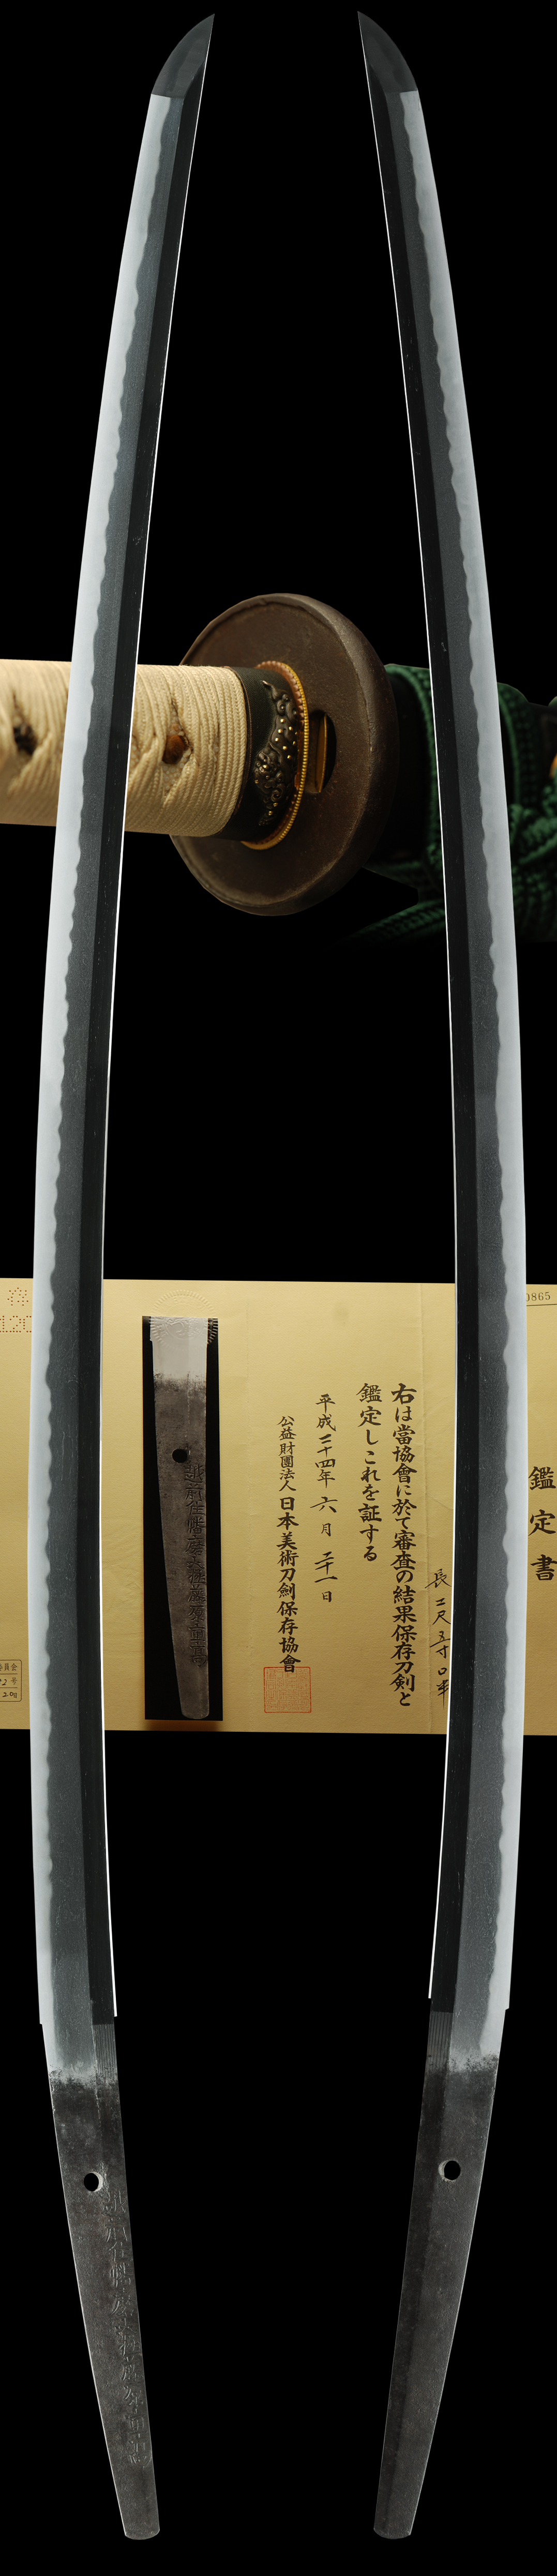 鑑定書
長二尺五寸0半
右は當協會に於て審査の結果保存刀剣と
鑑定しこれを証する
平成二十四年六月二十一日
公益財團法人日本美術刀劍保存協會
越前住播磨大掾藤原重高
0865